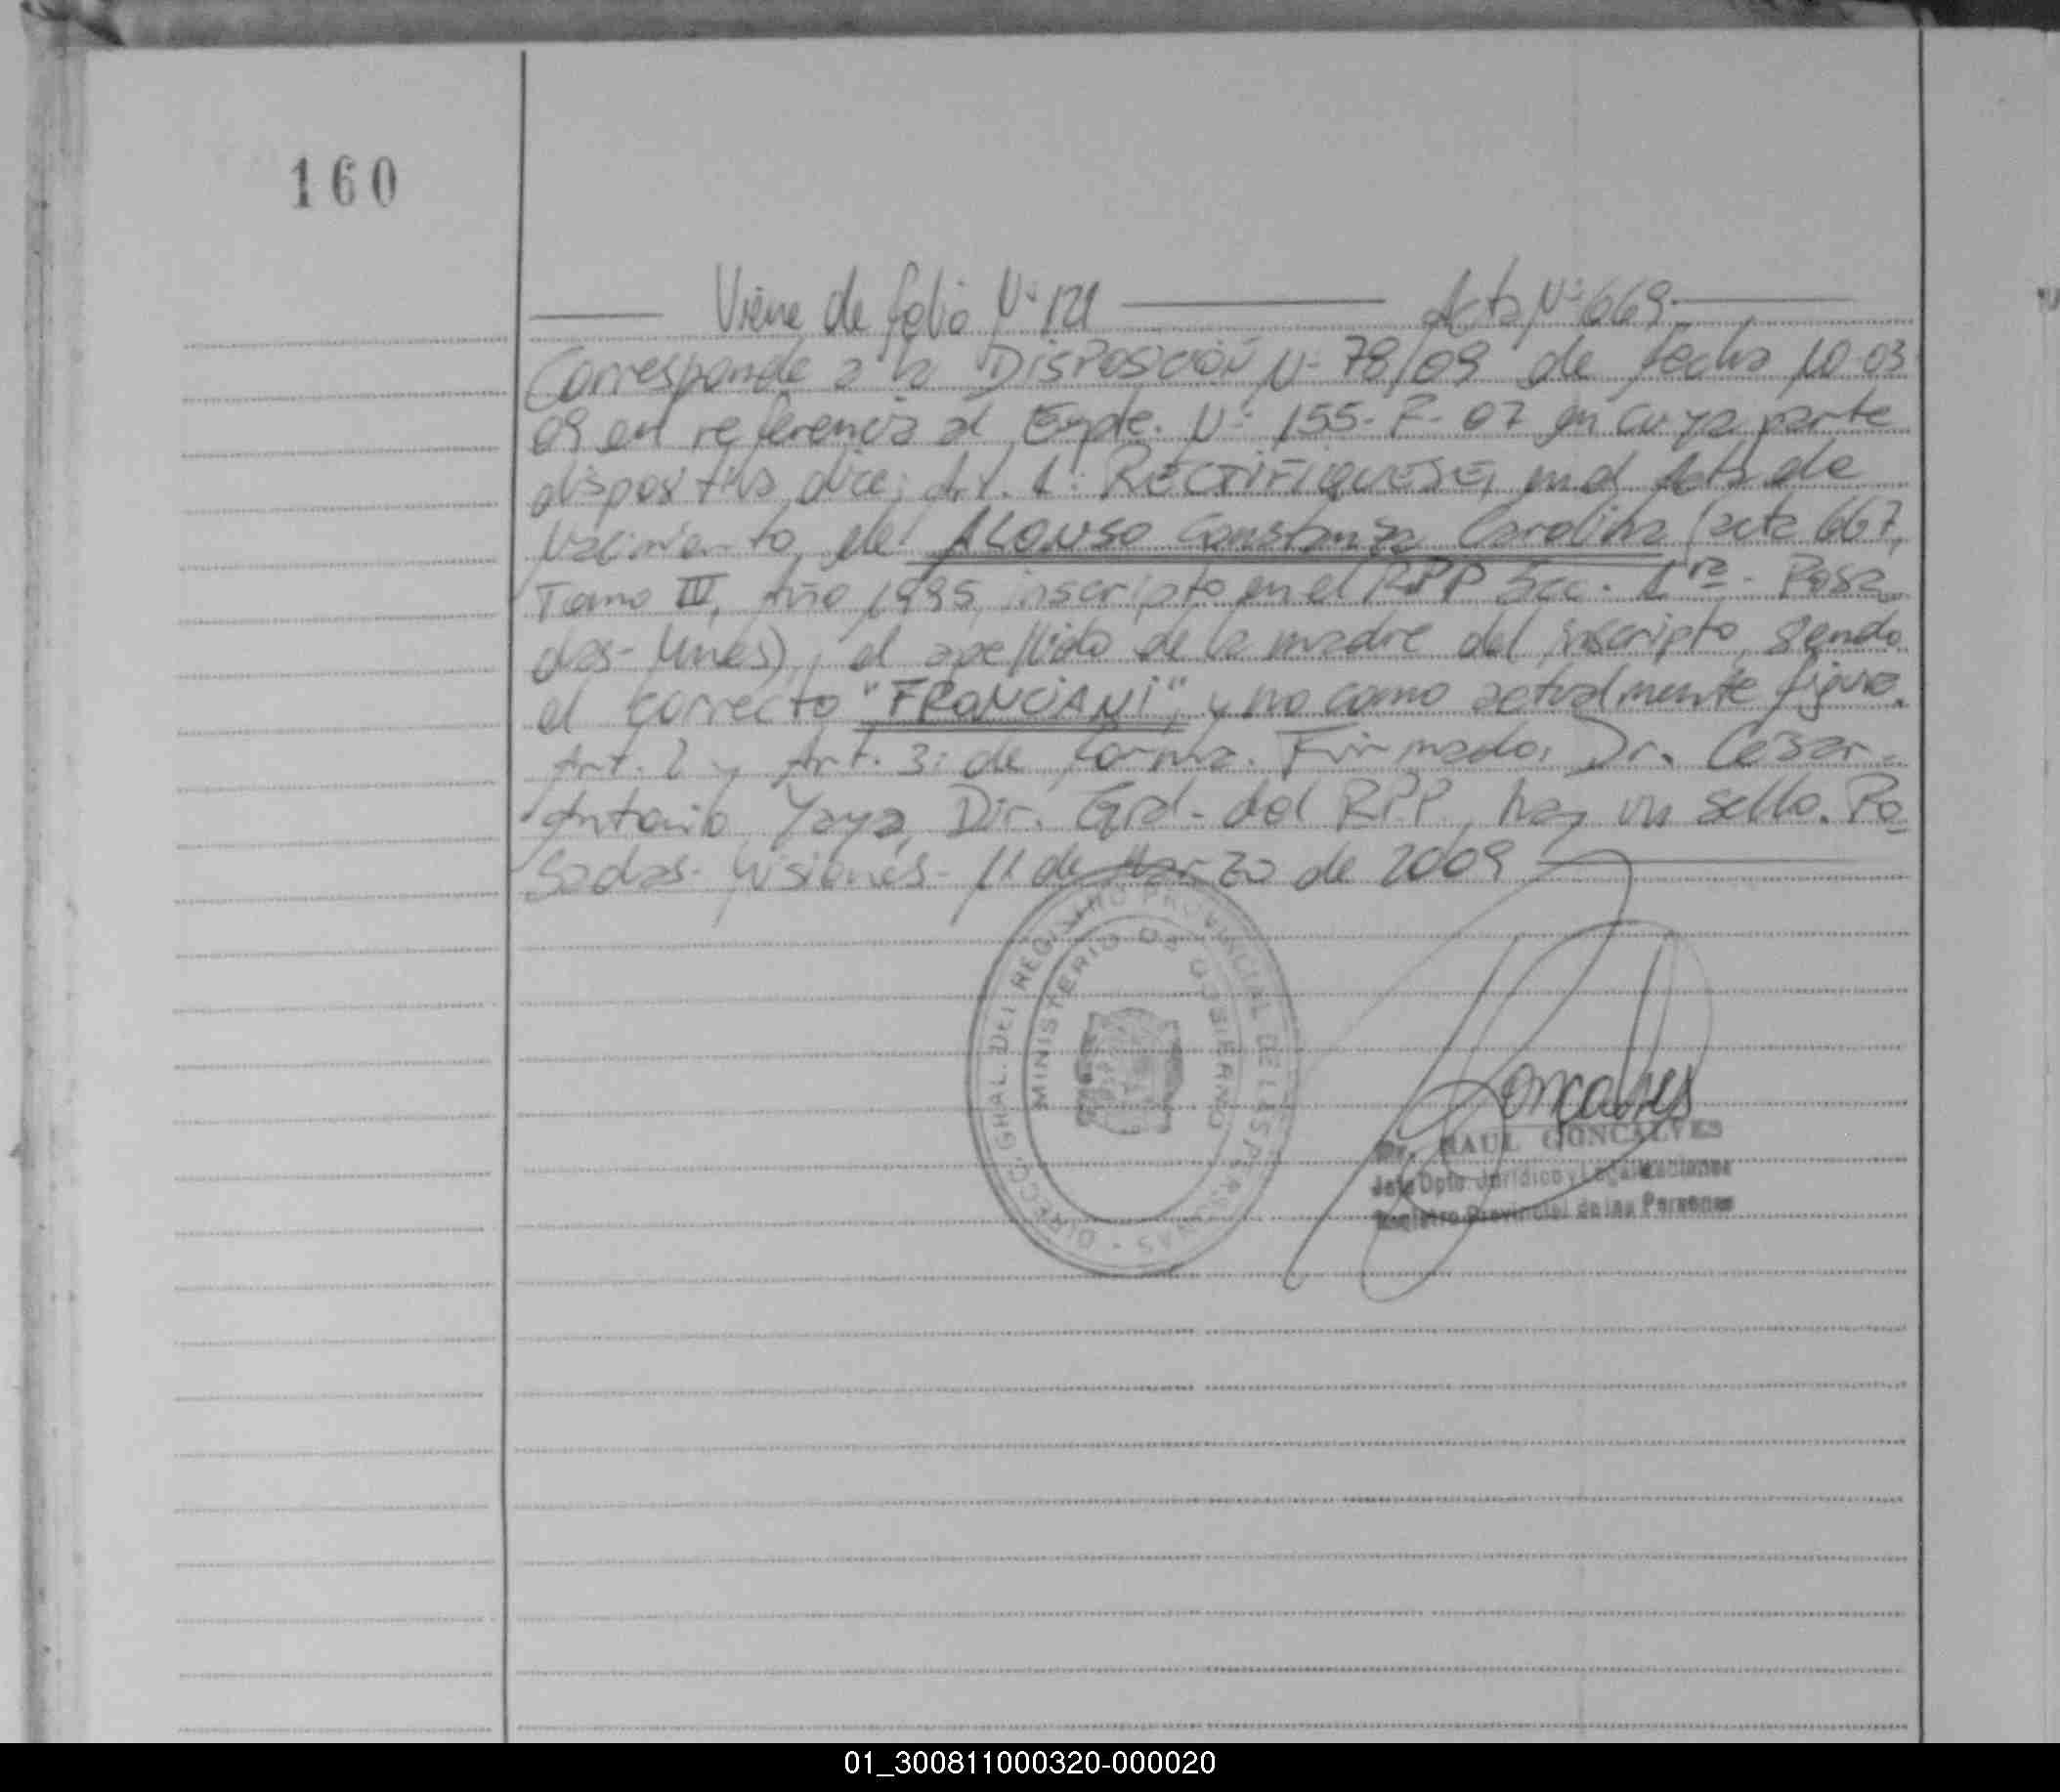 160
Viene de folio Nº 121 Acta Nº 669
Corresponde a la DISPOSICIÓN Nº 78/09 de fecha 10-03
09 en referencia al Expte. Nº 155-F-07 en cuya parte
dispositiva dice: Art. 1: RECTIFIQUESE, en el Acta de
Nacimiento de ALONSO Constanza Carolina (acta 667,
Tomo III, Año 1995, inscripto en el RPP Sec. 1ra - Posa
das-Mnes), el apellido de la madre del inscripto, siendo
el correcto "FRANCIANI", y no como actualmente figura.
Art. 2 y Art. 3: de forma. Firmado, Dr. Cesar
Antonio Yaya, Dir. Gral. del RPP, hay un sello. Po
sadas- Misiones- 11 de Marzo de 2009
DIRECC. GRAL. DEL REGISTRO PROVINCIAL DE LAS PERSONAS -
MINISTERIO DE GOBIERNO
Goncalves
Dr. RAUL GONCALVES
Jefe Dpto. Jurídico y Legalizaciones
Registro Provincial de las Personas
01_300811000320-000020